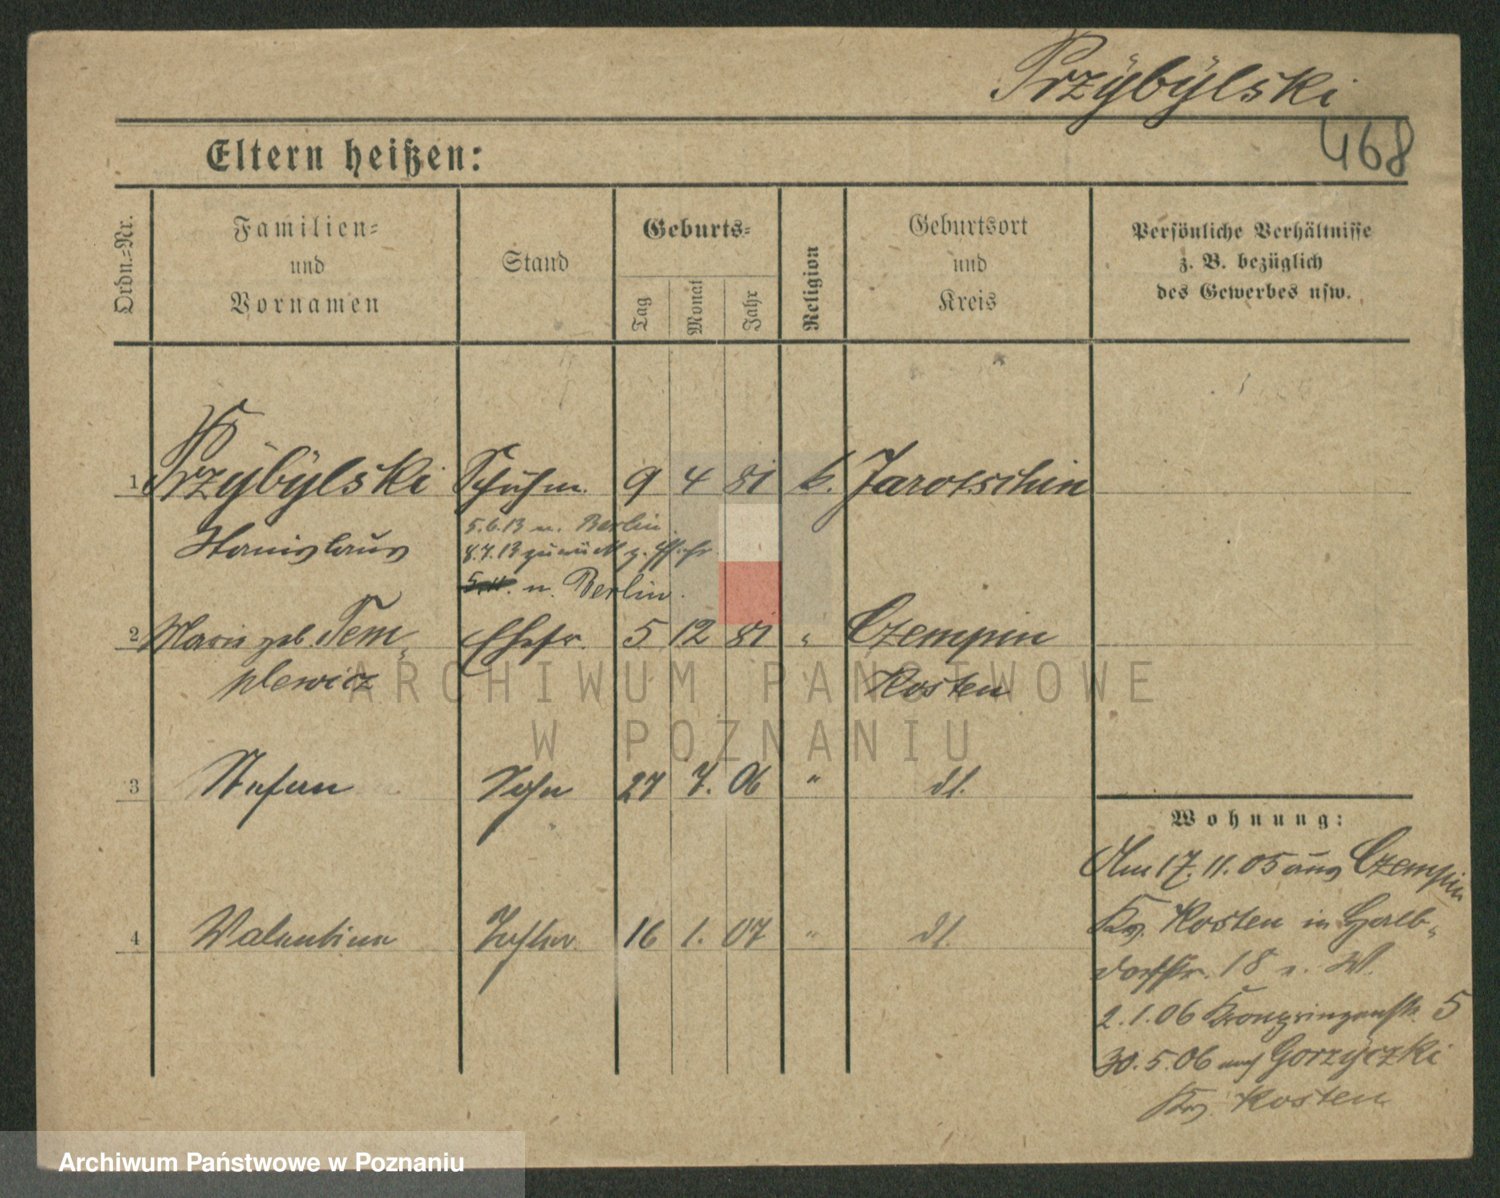 Przÿbÿlski
468
Eltern heißen:
Ordn.-Nr.
Familien-
und
Vornamen
Stand
Geburts-
Tag
Monat
Jahr
Religion
Geburtsort
und
Kreis
Persönliche Verhältnisse
z. B. bezüglich
des Gewerbes usw.
1 Przÿbÿlski Schuhm. 9 4 81 k. Jarotschin
Stanislaus
5.6.13 n. Berlin
8.7.13 zurück
n. Berlin.
2 Marie geb. Tem- Ehefr. 5 12 81 " Czempin
plewicz Kosten
3 Stefan Sohn 27 7. 06 " dt.
4 Valentina Tochter 16 1. 07 " dt.
Wohnung:
Am 17.11.05 aus Czempin
Krs. Kosten in
18
2.1.06 Kronprinzenstr. 5
30.5.06 nach Gorzÿczki
Krs. Kosten
ARCHIWUM PAŃSTWOWE
W POZNANIU
Archiwum Państwowe w Poznaniu